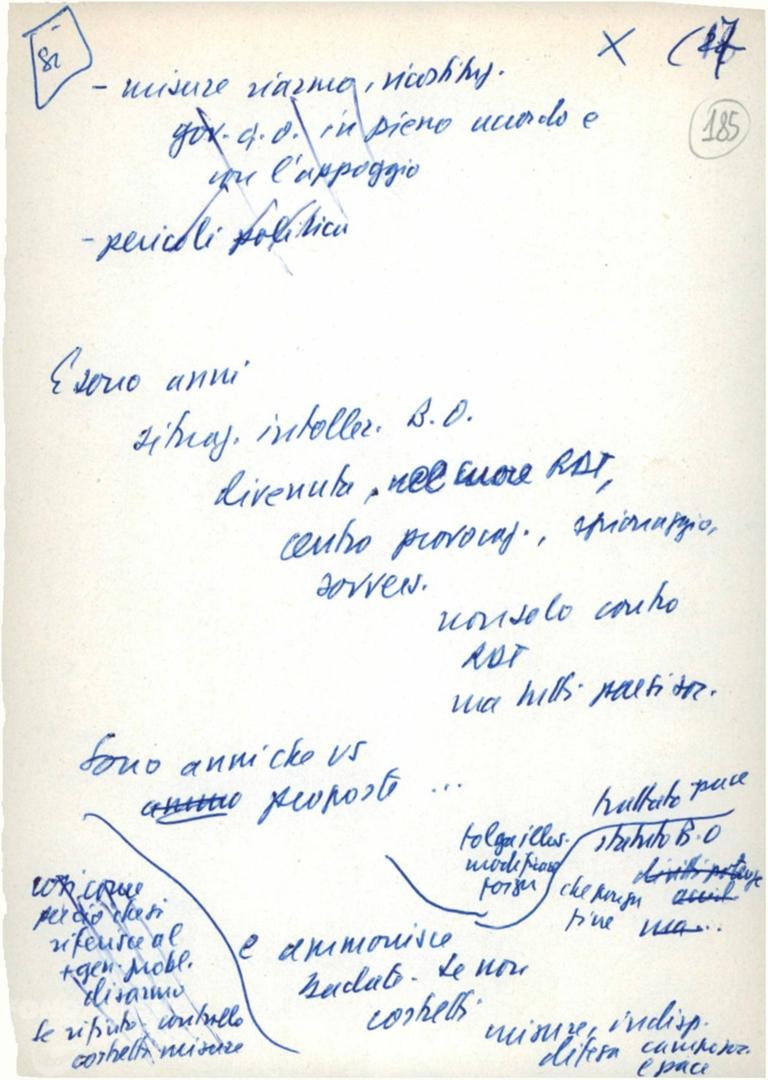 Sì
X (17
185
- misure riarmo, ricostituz.
gov. a.o. in pieno accordo e
con l'appoggio
- pericoli politica
E sono anni
situaz. intoller. B.O.
divenuta, nel cuore RDT,
centro provocaz., spionaggio,
sovvers.
non solo contro
RDT
ma tutti paesi soc.
Sono anni che US
proposte ...
trattato pace
statuto B.O
tolga illus.
modificare
forza
che ponga
fine
diritti potenze
ma..
così come
perciò che si
riferisce al
+ gen. probl.
disarmo
se rifiuto controllo
costretti misure
e ammonisce
badate. Se non
costretti
misure, indisp.
difesa campo soc.
e pace